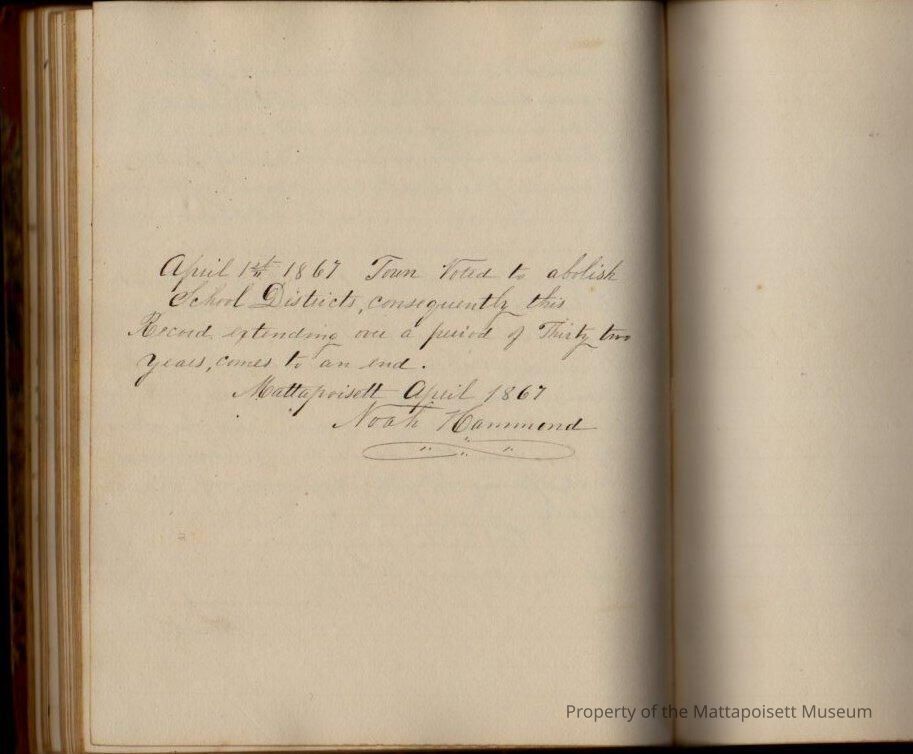 April 1st 1867 Town Voted to abolish
School Districts, consequently this
Record extending over a period of Thirty two
years, comes to an end.
Mattapoisett April 1867
Noah Hammond
Property of the Mattapoisett Museum